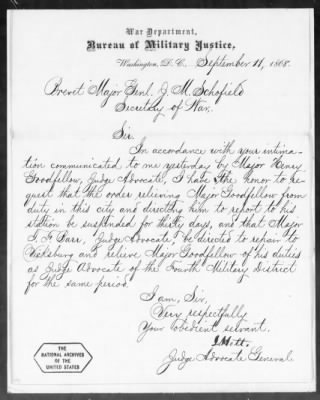 War Department,
Bureau of Military Justice,
Washington, D. C. September 11, 1868.
Brevet Major Genl. J. M. Schofield
Secretary of War.
Sir.
In accordance with your intima-
tion communicated to me yesterday by Major Henry
Goodfellow, Judge Advocate, I have the honor to re-
quest that the order relieving Major Goodfellow from
duty in this city and directing him to report to his
station be suspended for thirty days, and that Major
Barr, Judge Advocate, be directed to repair to
Vicksburg and relieve Major Goodfellow of his duties
as Judge Advocate of the Fourth Military District
for the same period.
I am, Sir,
Very respectfully
Your obedient servant.
Judge Advocate General
THE
NATIONAL ARCHIVES
OF THE
UNITED STATES